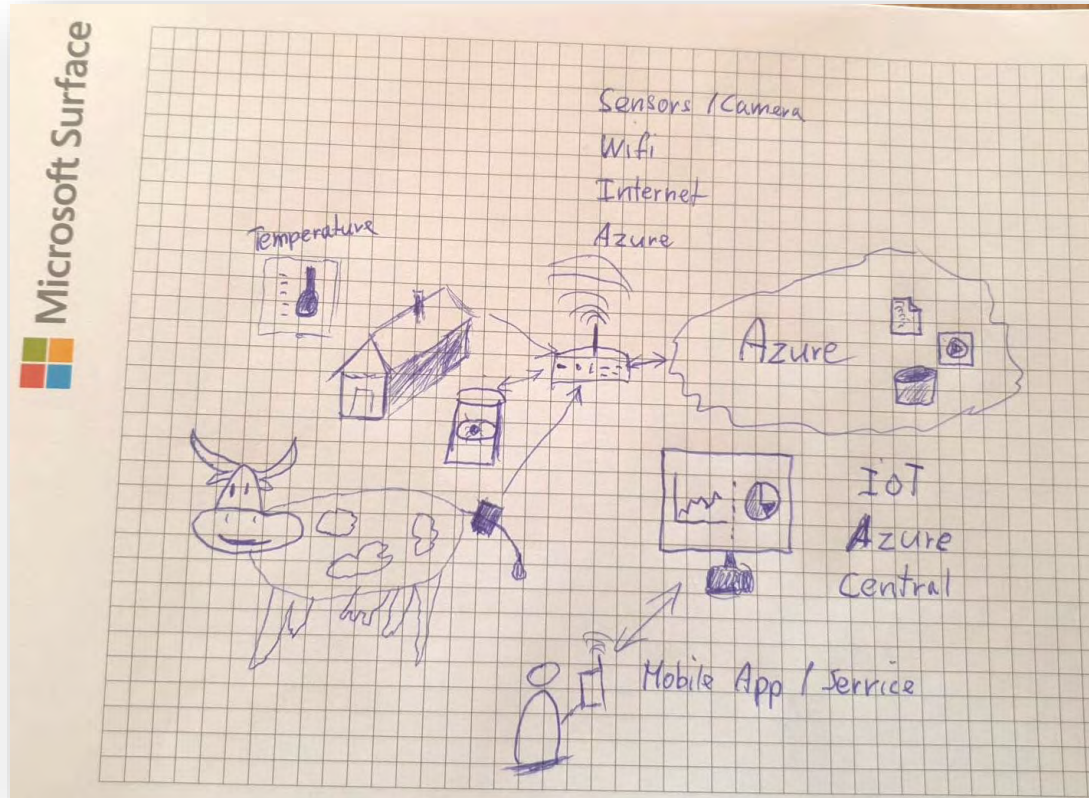 Microsoft Surface
Sensors / Camera
Wifi
Internet
Azure
Temperature
Azure
IoT
Azure
Central
Mobile App / Service